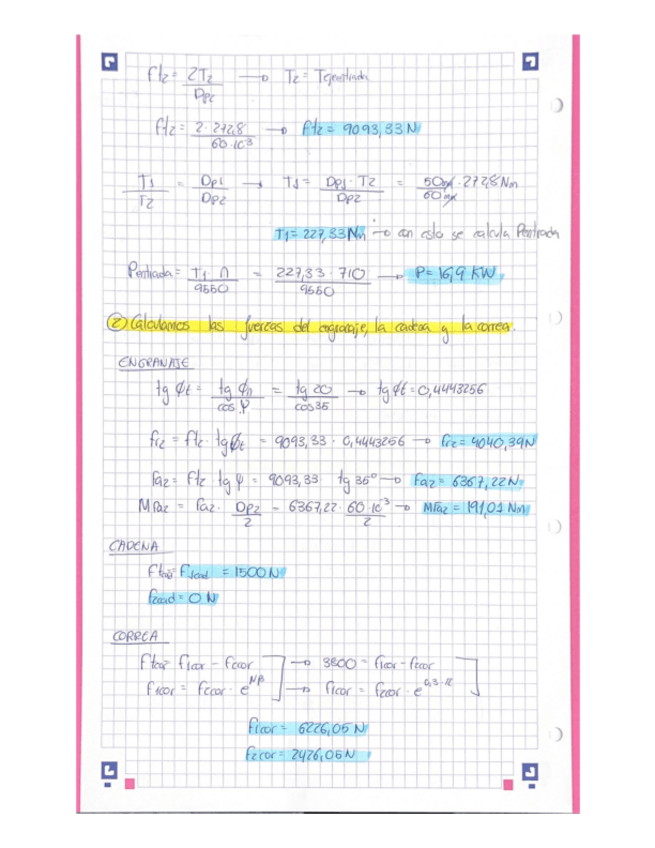 Ftz = 2Tz / Dpz → Tz = Tejentrada
Ftz = 2·272,8 / 60·10³ → Ftz = 9093,33 N
T1 / T2 = Dp1 / Dp2 → T1 = Dp1·T2 / Dp2 = 50mm·272,8 Nm / 60mm
T1 = 227,33 Nm → con esto se calcula Pentrada
Pentrada = T1·n / 9550 = 227,33·710 / 9550 → P = 16,9 KW
② Calculamos las fuerzas del engranaje, la cadena y la correa.
ENGRANAJE
tg ϕt = tg ϕn / cos ψ = tg 20 / cos 35 → tg ϕt = 0,4443256
Frz = Ftz · tg ϕt = 9093,33 · 0,4443256 → Frz = 4040,39 N
Faz = Ftz tg ψ = 9093,33 · tg 35° → Faz = 6367,22 N
MFaz = Faz · Dpz / 2 = 6367,22 · 60·10⁻³ / 2 → MFaz = 191,01 Nm
CADENA
F1cad = 1500 N
F2cad = 0 N
CORREA
F1cor - F2cor → 3800 = F1cor - F2cor
F1cor = F2cor · e^Nβ → F1cor = F2cor · e^0,3·π
F1cor = 6226,05 N
F2cor = 2426,05 N